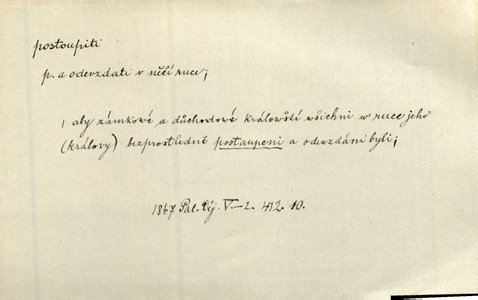 postoupiti
p. a odevzdati v něčí ruce;
, aby zámkowé a důchodowé králowští wšichni w ruce jeho
(králowy) bezprostředně postaupeni a odewzdáni byli;
1867 Pal. Děj. V-2. 412. 10.